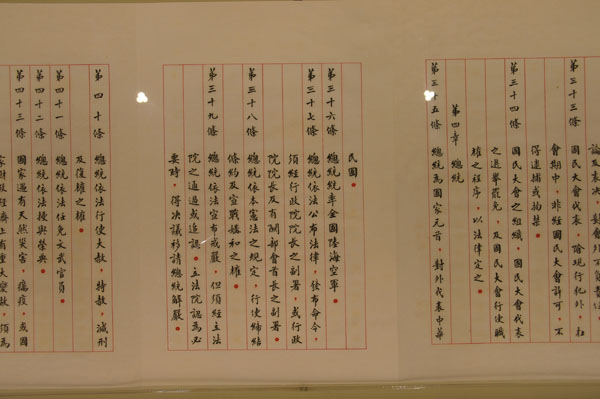 論及表決，對會外不負責任。
第三十三條　國民大會代表，除現行犯外，在
會期中，非經國民大會許可，不
得逮捕或拘禁。
第三十四條　國民大會之組織，國民大會代表
之選舉罷免，及國民大會行使職
權之程序，以法律定之。
第四章　總統
第三十五條　總統為國家元首，對外代表中華
民國。
第三十六條　總統統率全國陸海空軍。
第三十七條　總統依法公布法律，發布命令，
須經行政院院長之副署，或行政
院院長及有關部會首長之副署。
第三十八條　總統依本憲法之規定，行使締結
條約及宣戰媾和之權。
第三十九條　總統依法宣布戒嚴，但須經立法
院之通過或追認。立法院認為必
要時，得決議移請總統解嚴。
第四十條　總統依法行使大赦，特赦，減刑
及復權之權。
第四十一條　總統依法任免文武官員。
第四十二條　總統依法授與榮典。
第四十三條　國家遇有天然災害，癘疫，或國
家財政經濟上有重大變故，須為